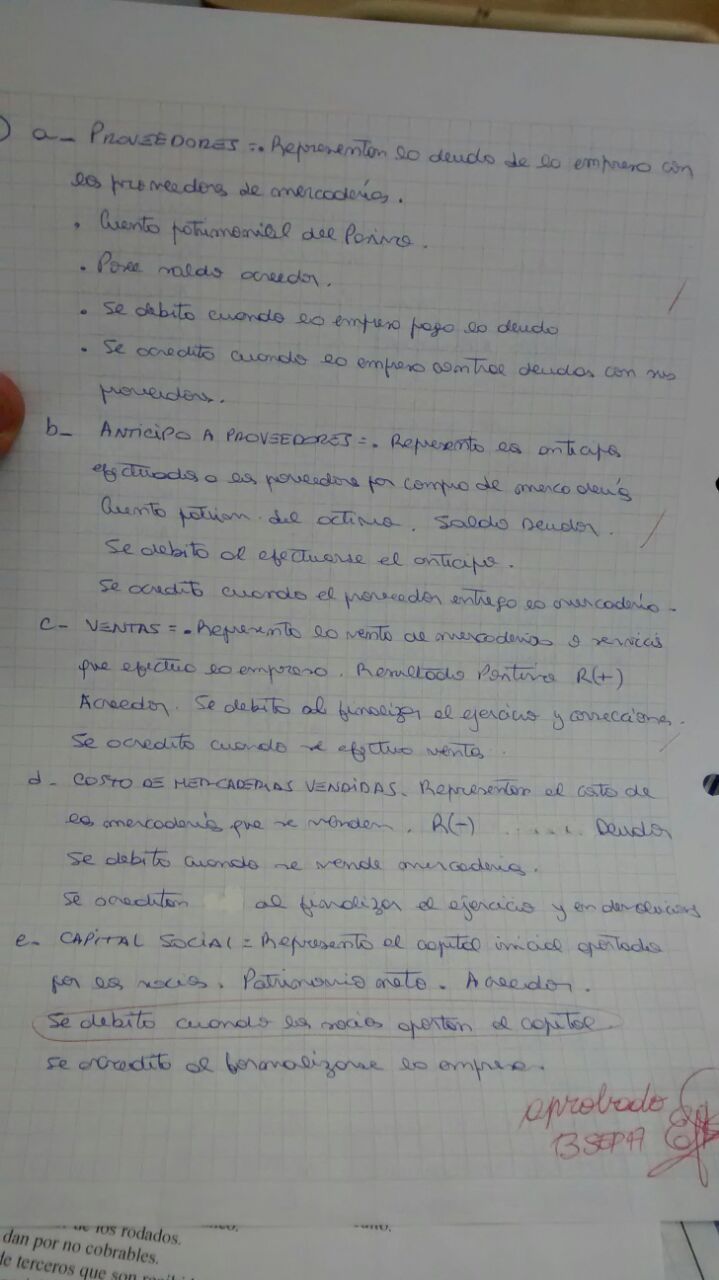 a- PROVEEDORES =. Representan la deuda de la empresa con
los proveedores de mercaderías.
. Cuenta patrimonial del Pasivo.
. Posee saldo acreedor.
. Se debita cuando la empresa paga la deuda
. Se acredita cuando la empresa contrae deudas con sus
proveedores.
b- ANTICIPO A PROVEEDORES =. Representa los anticipos
efectuados a los proveedores por compra de mercaderías
Cuenta patrim. del activo. Saldo Deudor.
Se debita al efectuarse el anticipo.
Se acredita cuando el proveedor entrega la mercadería.
c- VENTAS =. Representa la venta de mercaderías o servicios
que efectua la empresa. Resultado Positivo R(+)
Acreedor. Se debita al finalizar el ejercicio y correcciones.
Se acredita cuando se efectua venta.
d- COSTO DE MERCADERIAS VENDIDAS. Representan el costo de
las mercaderías que se venden. R(-) ..... Deudor
Se debita cuando se vende mercaderia.
Se acreditan al finalizar el ejercicio y en devoluciones
e- CAPITAL SOCIAL = Representa el capital inicial aportado
por los socios. Patrimonio neto. Acreedor.
Se debita cuando los socios aportan el capital.
Se acredita al formalizarse la empresa.
aprobado
13 SEP 17
de los rodados.
dan por no cobrables.
de terceros que son